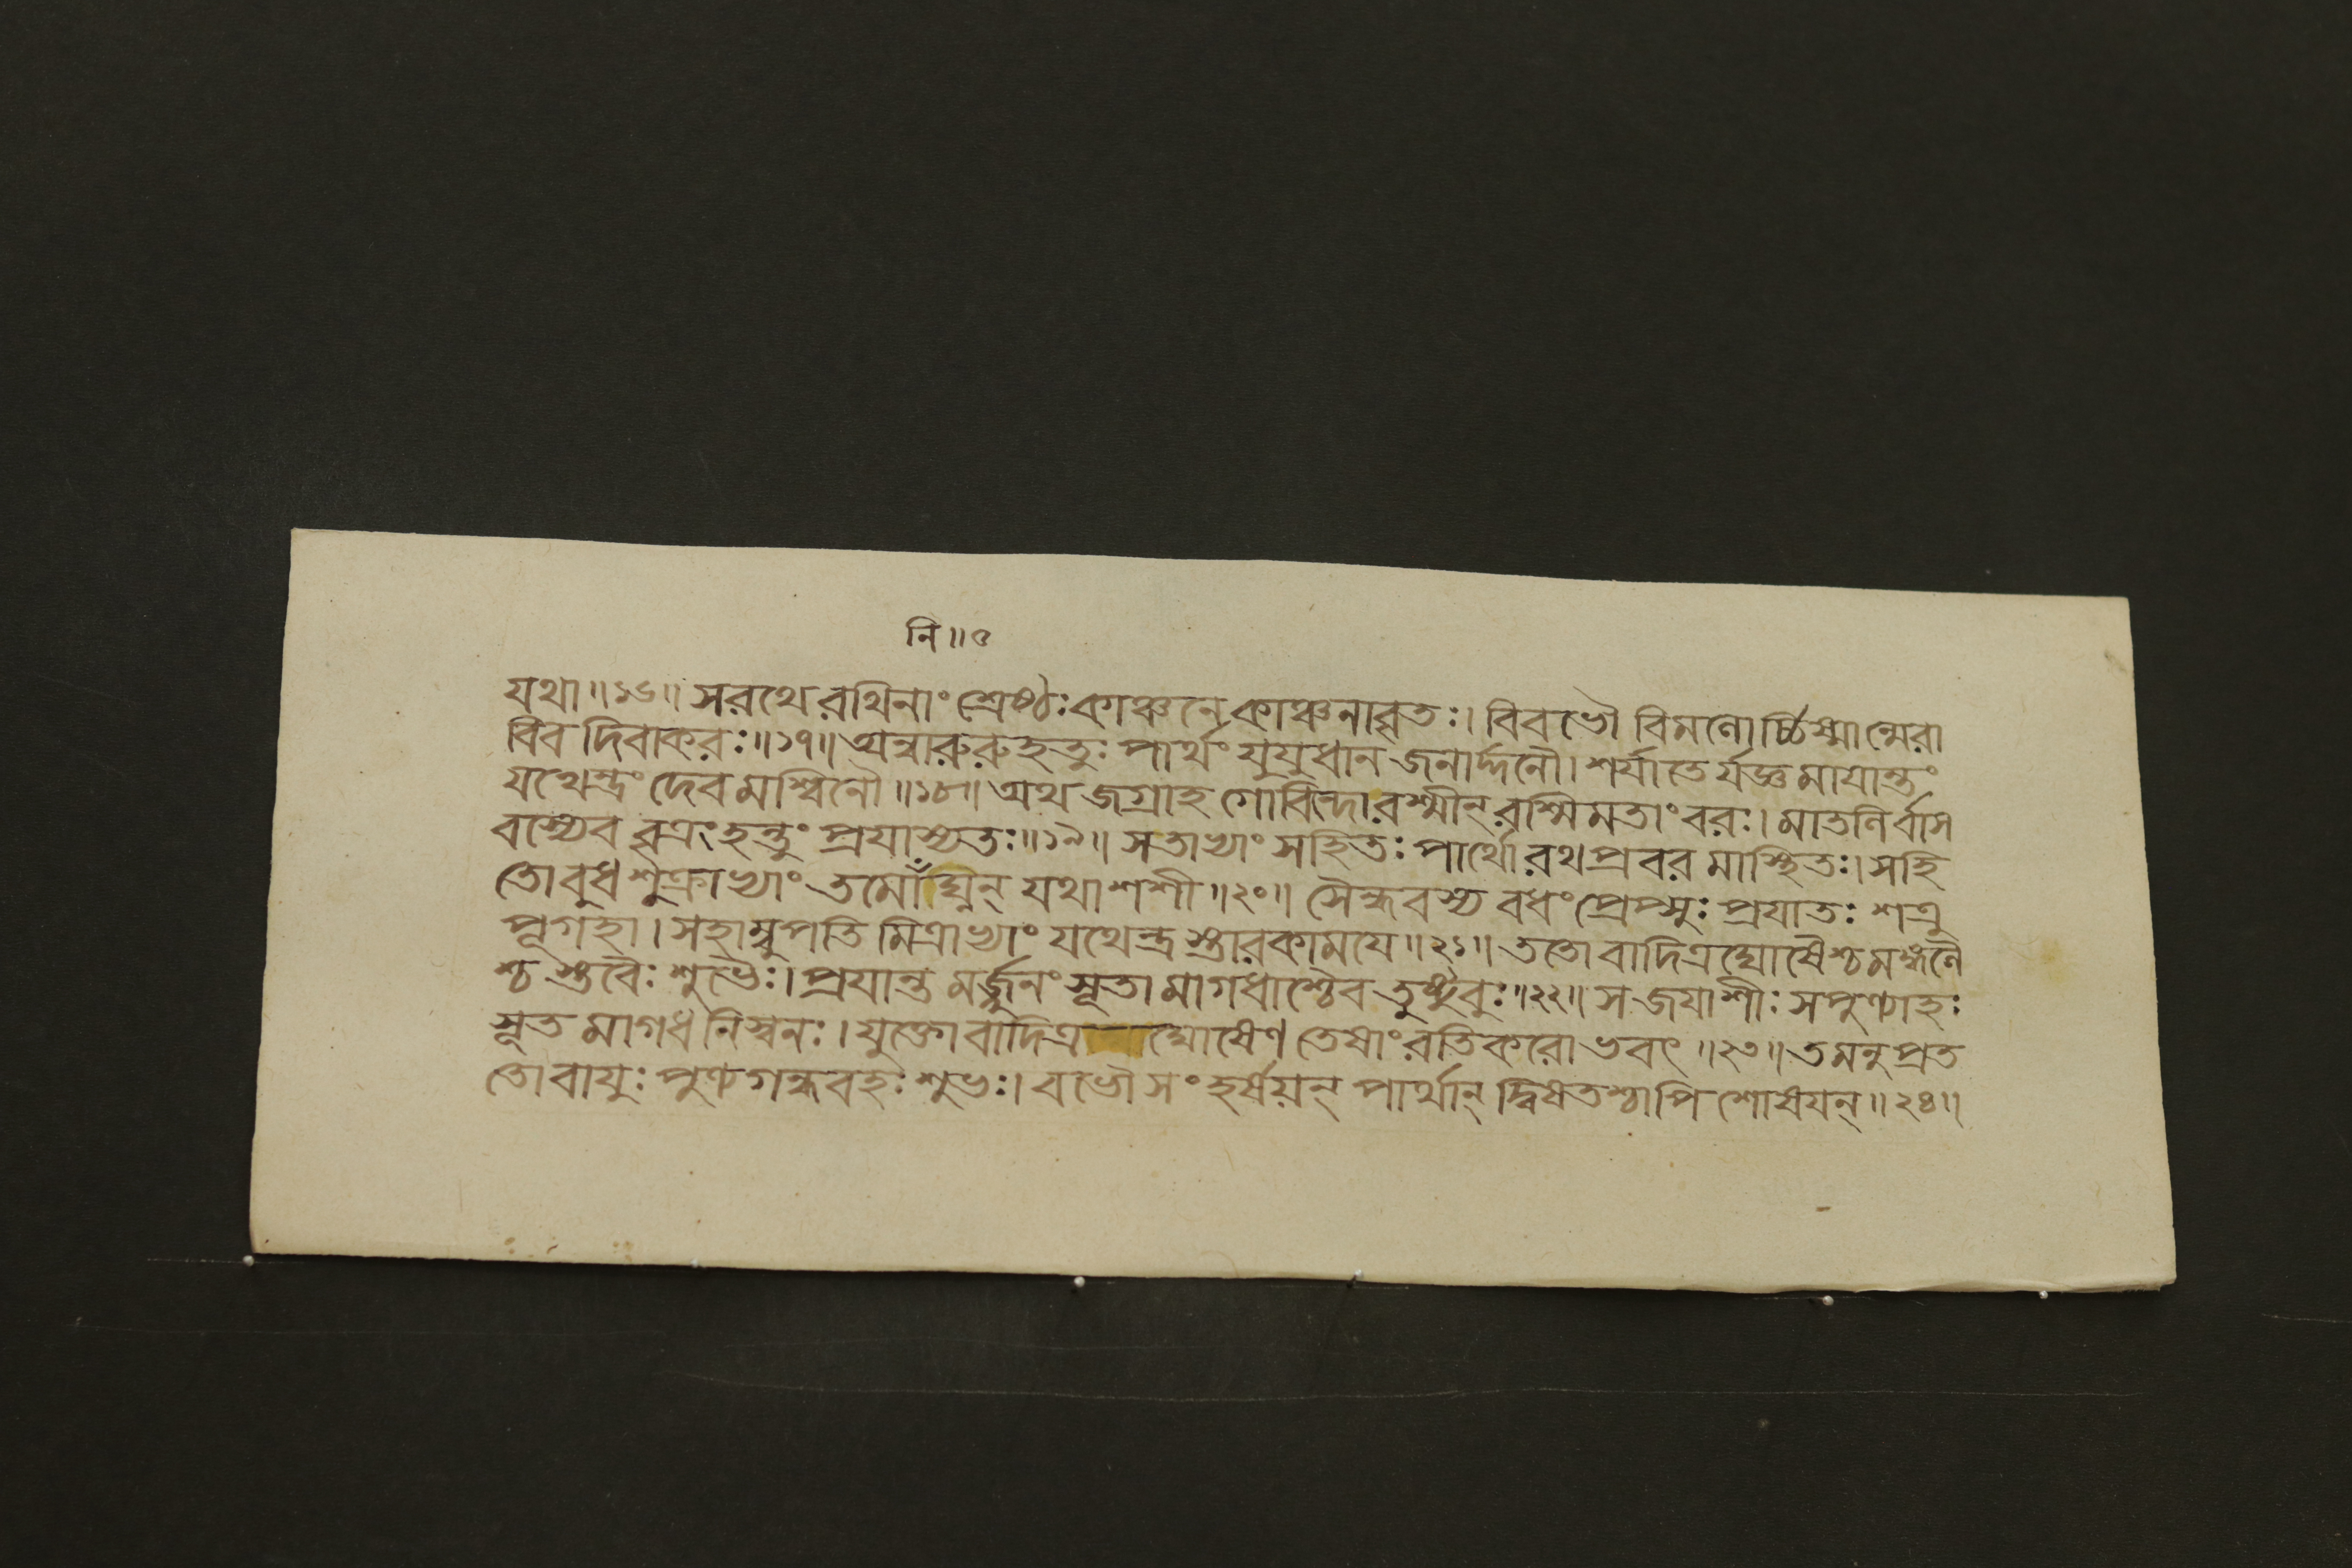 নি॥৫
যথা॥১৬॥ সরথে রথিনাং শ্রেষ্ঠঃ কাঞ্চনে কাঞ্চনাবৃতঃ। বিবভৌ বিমলোর্চ্চিষ্মান্মেরা
বিব দিবাকরঃ॥১৭॥ অন্বারুরুহতুঃ পার্থং যুযুধান জনার্দ্দনৌ। শর্যাতের্যজ্ঞমাযান্তং
যথেন্দ্রং দেবমশ্বিনৌ॥১৮॥ অথ জগ্রাহ গোবিন্দো রশ্মীন্ রশ্মিমতাং বরঃ। মাতলির্বাস
বস্যেব বৃত্রং হন্তুং প্রযাস্যতঃ॥১৯॥ সতাভ্যাং সহিতঃ পার্থো রথপ্রবরমাস্থিতঃ। সহি
তো বুধশুক্রাভ্যাং তমোঁ ঘ্নিন্ যথা শশী॥২০॥ সৈন্ধবস্য বধং প্রেপ্সুঃ প্রযাতঃ শত্রু
পূগহা। সহাম্বুপতি মিত্রাভ্যাং যথেন্দ্র স্তারকামযে॥২১॥ ততো বাদিত্রঘোষৈশ্চ মঙ্গলৈ
শ্চ স্তবৈঃ শুভৈঃ। প্রযান্তমর্জ্জুনং সূতা মাগধাশ্চৈব তুষ্টুবুঃ॥২২॥ স জযাশীঃ সপুণ্যাহঃ
সূত মাগধ নিস্বনঃ। যুক্তো বাদিত্র ঘোষেণ তেষাং রতিকরো ভবৎ॥২৩॥ তমনুপ্রত
তো বাযুঃ পুণ্যগন্ধবহঃ শুভঃ। ববৌ সংহর্ষযন্ পার্থান্ দ্বিষতশ্চাপি শোষযন্॥২৪॥